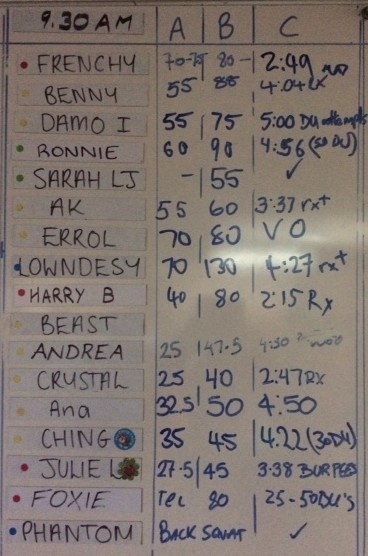 9.30 AM A B C
FRENCHY 70-75 80- 2:49
BENNY 55 4:04 RX
DAMO I 55 75 5:00 DU attempts
RONNIE 60 90 4:56 (50 DU)
SARAH LJ - 55 ✓
AK 55 60 3:37 rx+
ERROL 70 80 V O
LOWNDESY 70 130 4:27 rx+
HARRY B 40 80 2:15 Rx
BEAST
ANDREA 25 47.5 4:30
CRYSTAL 25 40 2:47 RX
Ana 32.5 50 4:50
CHING 35 45 4:22 (30DU)
JULIE L 27.5 45 3:38 BURPEES
FOXIE TEC 80 25-50DU's
PHANTOM BACK SQUAT ✓